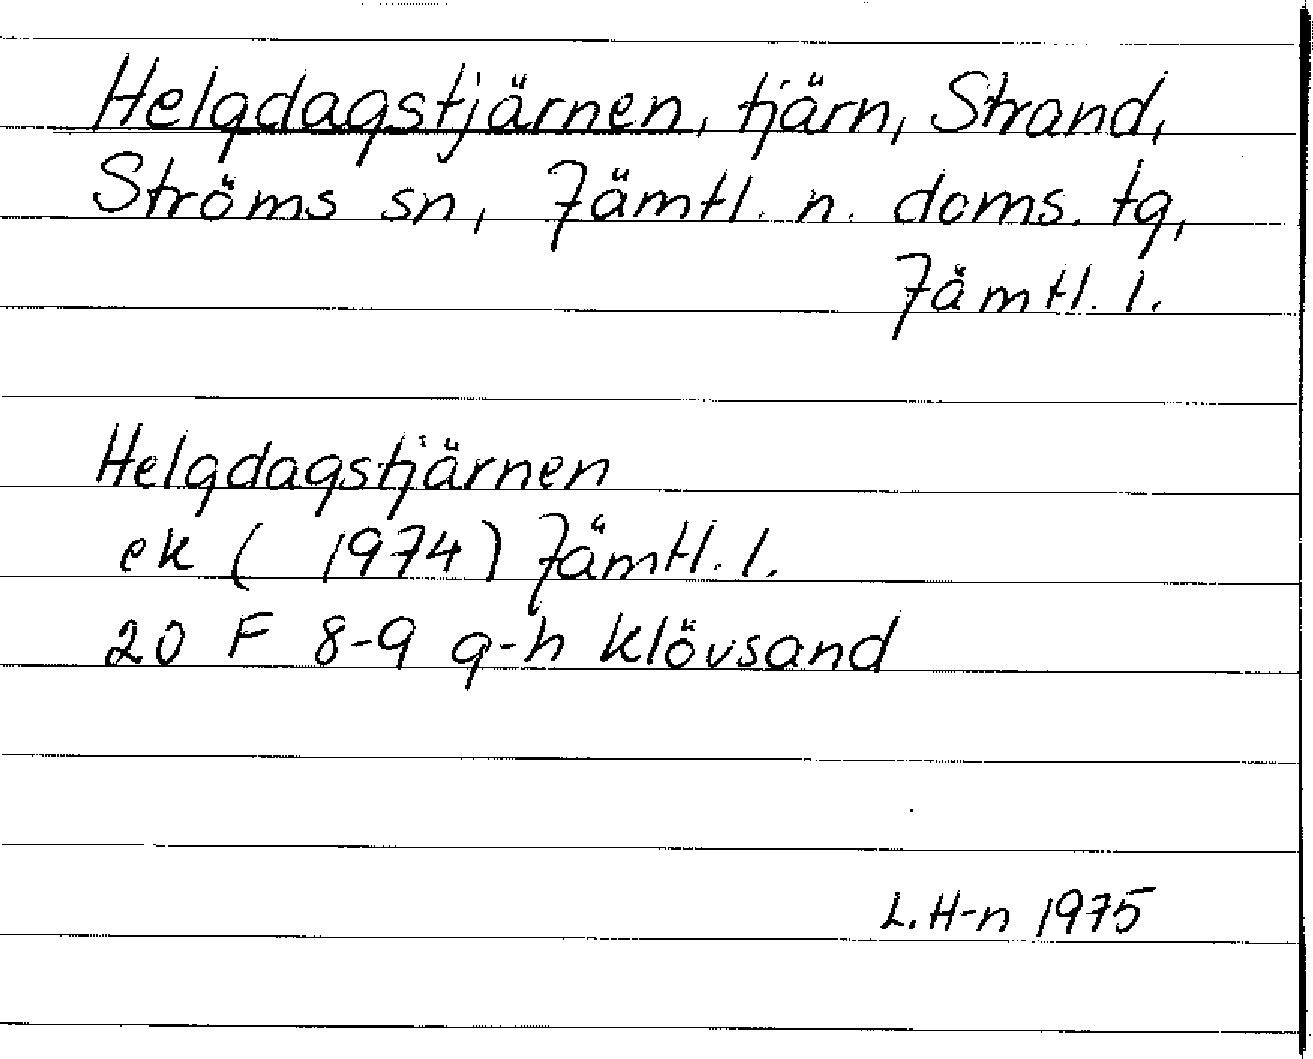 Helgdagstjärnen, tjärn, Strand,
Ströms sn, Jämtl. n. doms. tg,
Jämtl. l.
Helgdagstjärnen
ek ( 1974) Jämtl. l.
20 F 8-9 g-h Klövsand
L. H-n 1975